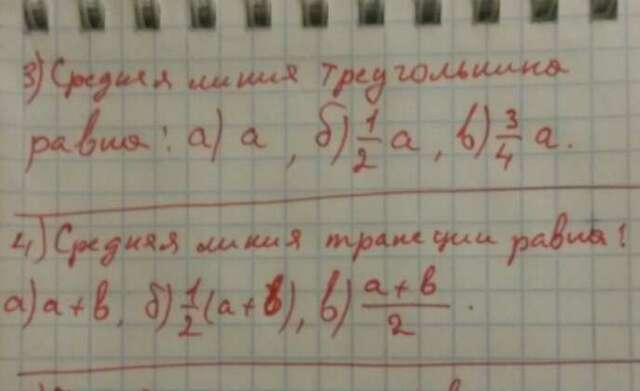 3) Средняя линия треугольника
равна: а) a, б) 1/2 a, в) 3/4 a.
4) Средняя линия трапеции равна:
а) a + b, б) 1/2 (a + b), в) (a + b)/2.